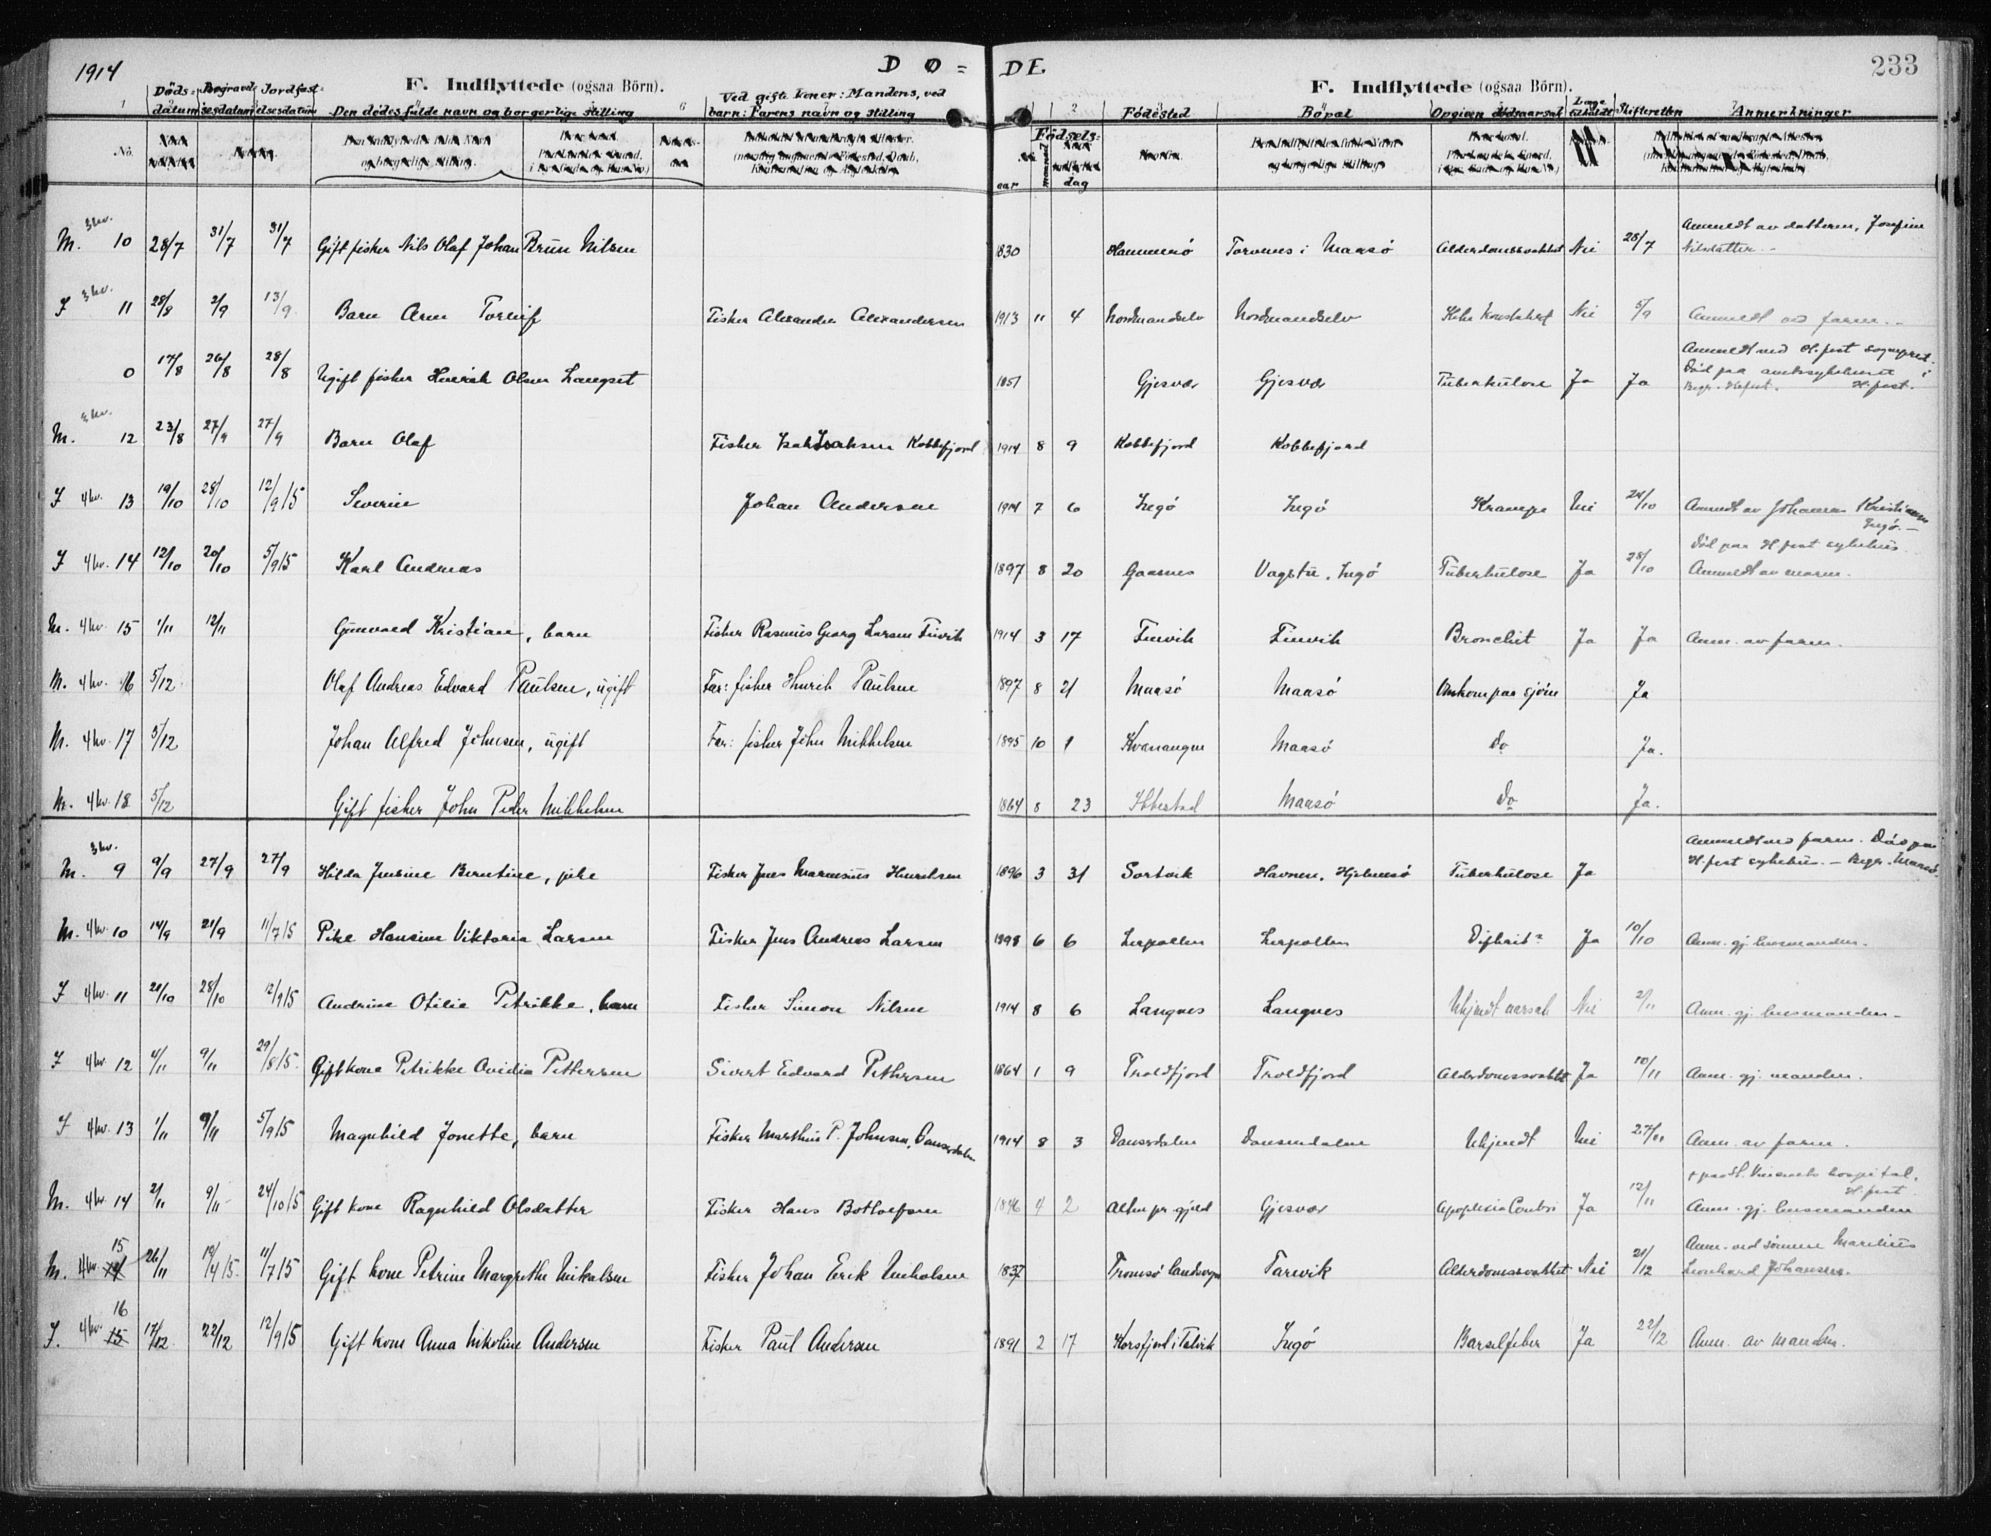 1914 D Ø = DE. 233
F. Indflyttede (ogsaa Börn). F. Indflyttede (ogsaa Börn).
1 Döds= datum Begravel= sesdatum Jordfast= elsesdatum Den dödes fulde navn og borgerlige stilling 6 Ved gifte koner: Mandens, ved barn: Farens navn og stilling 2 Födested Böpæl Opgiven dödsaarsak Læge Skifteretten Anmerkninger
No. Födsels: aar maaned dag
M. 3 kv. 10 28/7 31/7 31/7 Gift fisker Nils Olaf Johan Brun Nilsen 1830 Tarvnes i Maasö Alderdomssvakhet Nei 28/7 Anmeldt av datteren, Josefine Nilsdatter
F 3 kv. 11 28/8 2/9 13/9 Barn Arne Torleif Fisker Alexander Alexandersen 1913 11 4 Nordmandselv Nordmandselv Nei 5/9 Anmeldt ved faren.
0 17/8 26/8 28/8 Ugift fisker Henrik Olsen Langset 1851 Gjesvær Gjesvær Tuberkulose Ja Ja Anmeldt ved H.fest sogneprest. Död paa amtssykehuset i H.fest.
M. 12 23/8 27/9 27/9 Barn Olaf Fisker Isak Isaksen Kobbefjord 1914 8 9 Kobbefjord Kobbefjord
F 4 kv. 13 19/10 28/10 12/9 15 Severine Johan Andersen 1914 7 6 Ingö Ingö Krampe Nei 24/10 Anmeldt av Johannes Kristiansen Ingö.
F 4 kv. 14 12/10 20/10 5/9 15 Karl Andreas 1897 8 20 Gaasnes Ingö Tuberkulose Ja 28/10 Död paa H.fest sykehus. Anmeldt av moren.
M. 4 kv. 15 1/11 12/11 Gunvald Kristian, barn Fisker Rasmus Georg Larsen Finvik 1914 3 17 Finvik Finvik Bronchit Ja Ja Anm. av faren.
M. 4 kv. 16 5/12 Olaf Andreas Edvard Paulsen, ugift Far: fisker Henrik Paulsen 1897 8 21 Maasö Maasö Omkom paa sjöen Ja
M. 4 kv. 17 5/12 Johan Alfred Johnsen, ugift Far: fisker John Mikkelsen 1895 10 1 Kvænangen Maasö Do Ja.
M. 4 kv. 18 5/12 Gift fisker John Peder Mikkelsen 1864 8 23 Ibbestad Maasö Do Ja.
M. 3 kv. 9 9/9 27/9 27/9 Hilda Jensine Berntine, pike Fisker Jens Marensius Henriksen 1896 3 31 Sortvik Havnen, Hjelmsö Tuberkulose Ja Anmeldt ved faren. Död paa H.fest sykehus. - Begr. Maasö.
M. 4 kv. 10 14/9 21/9 11/7 15 Pike Hansine Viktoria Larsen Fisker Jens Andreas Larsen 1898 6 6 Lerpollen Lerpollen Difterit Ja 10/10 Anm. gj. lensmanden.
F 4 kv. 11 21/10 28/10 12/9 15 Andrine Otilie Petrikke, barn Fisker Simon Nilsen 1914 8 6 Langnes Langnes Ukjendt aarsak Nei 2/11 Anm. gj. lensmanden
F 4 kv. 12 4/11 9/11 29/8 15. Gift kone Petrikke Ovidia Pettersen Sivert Edvard Pettersen 1864 1 9 Troldfjord Troldfjord Alderdomssvakhet Ja 10/11 Anm. gj. manden.
F 4 kv. 13 1/11 9/11 5/9 15 Magnhild Jonette, barn Fisker Marthus P. Johnsen, Dansedalen 1914 8 3 Dansedalen Ukjendt Nei 27/11 Anm. av faren.
M. 4 kv. 14 2/11 9/11 24/10 15 Gift kone Ragnhild Olsdatter Fisker Hans Bottolfsen 1846 4 2 Alten pr.gjeld Gjesvær Ja 12/11 + paa St. Vincents hospital, H.fest. Anm. gj. lensmanden
M. 4 kv. 15 26/11 19/4 15. 11/7 15 Gift kone Petrine Margrethe Nikolsen Fisker Johan Erik Nicholsen 1837 Tromsö landsogn Tarevik Alderdomssvakhet Nei 21/12 Anm. ved sönnen Marelius Leonhard Johansen.
F. 4 kv. 16 17/12 22/12 12/9 15 Gift kone Anna Nikoline Andersen Fisker Paul Andersen 1891 2 17 Korsfjord i Talvik Ingö Barselfeber Ja 22/12 Anm. av manden.